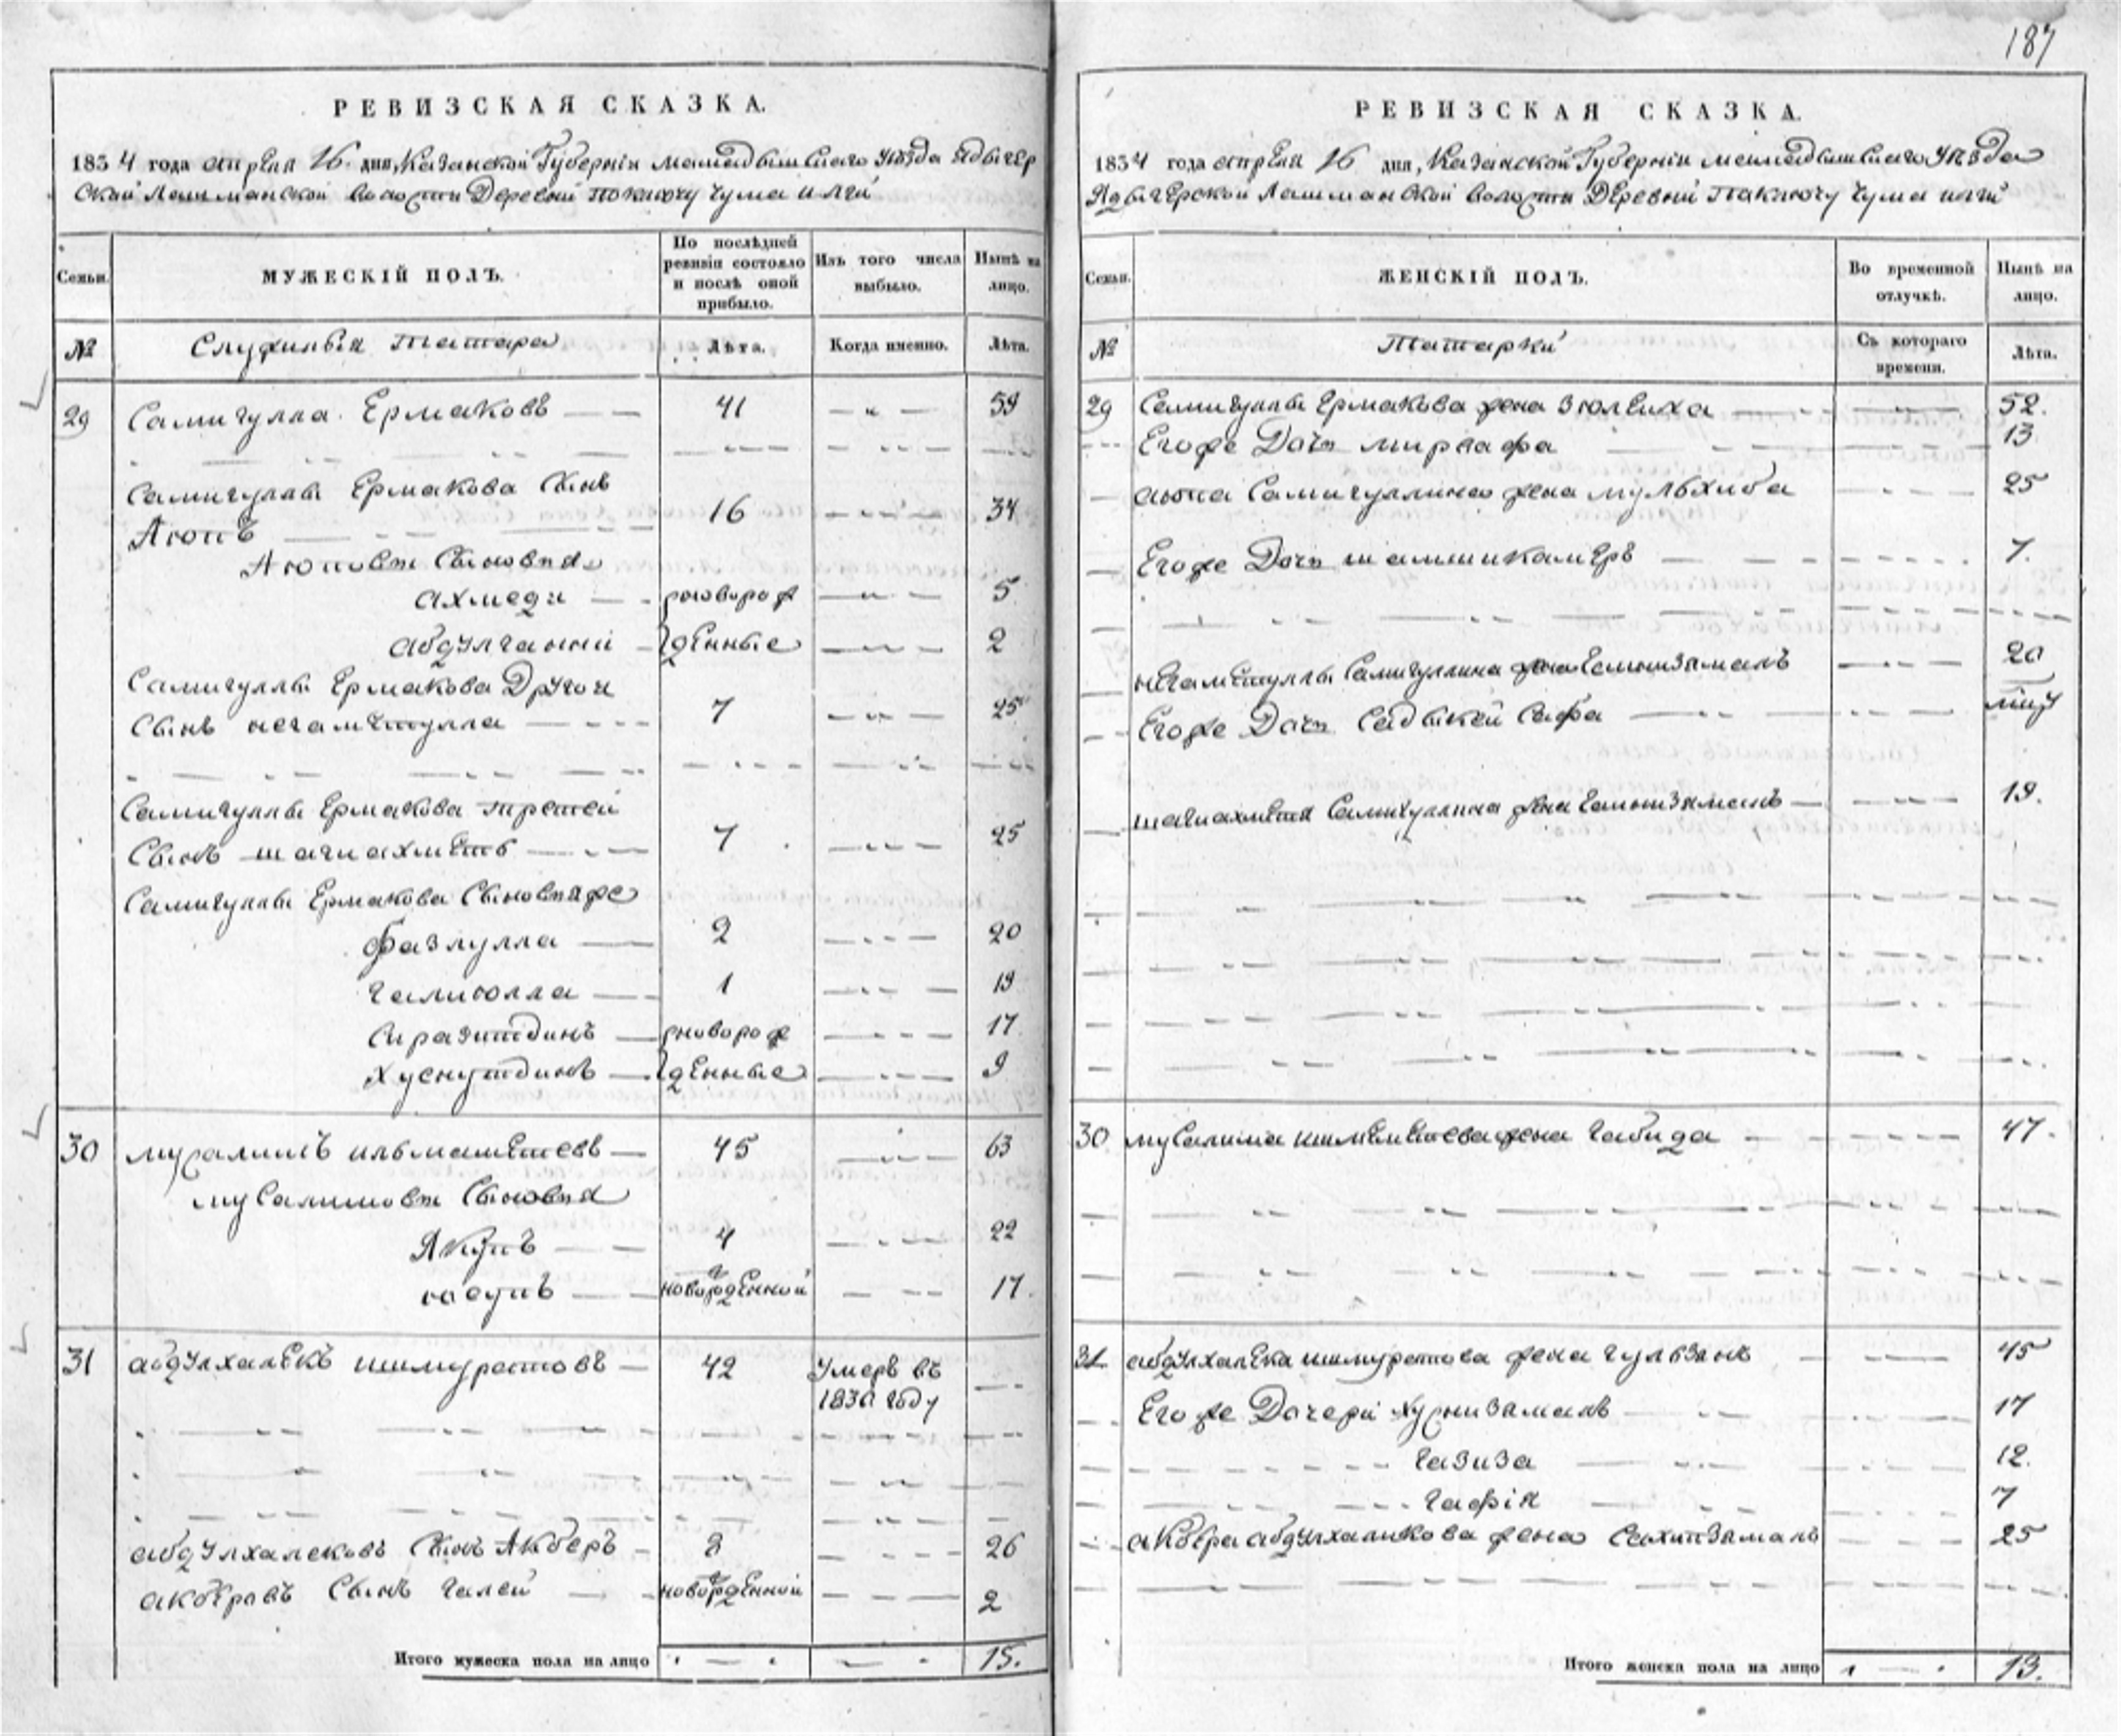 187
РЕВИЗСКАЯ СКАЗКА.
1834 года апреля 16 дня, Казанской Губернiи мамадышскаго уѣзда Ядыгер
ской Лашманской волости Деревни
Семьи.
МУЖЕСКІЙ ПОЛЪ.
По послѣдней ревизіи состояло и послѣ оной прибыло.
Изъ того числа выбыло.
Нынѣ на лицо.
№
Служилыя татара
Лѣта.
Когда именно.
Лѣта.
29 Самигулла Ермаковъ 41 59
Самигуллы Ермакова Сынъ
Аюпъ 16 34
Аюповы Сыновья
ахмеди новорож 5
абдулганни денные 2
Самигуллы Ермакова Другои
Сынъ негаметулла 7 25
Самигуллы Ермакова третей
Сынъ шагиахметъ 7 25
Самигуллы Ермакова Сыновьяже
фазлулла 2 20
галиюлла 1 19
Сиразитдинъ новорож 17
Хуснутдинъ денные 9
30 мусалимъ 45 63
мусалимовы Сыновья
Якупъ 4 22
юсупъ новорожденной 17
31 абдулхалекъ ишмуратовъ 42 Умеръ въ
1830 году
абдулхалековъ Сынъ Акберъ 8 26
акберовъ Сынъ галей новорожденной 2
Итого мужеска пола на лицо 15.
РЕВИЗСКАЯ СКАЗКА.
1834 года апреля 16 дня, Казанской Губернiи мамадышскаго уѣзда
Ядыгерской Лашманской волости Деревни
Семьи.
ЖЕНСКІЙ ПОЛЪ.
Во временной отлучкѣ.
Нынѣ на лицо.
№
Татарки
Съ котораго времени.
Лѣта.
29 Самигуллы Ермакова жена Зюлеиха 52.
Егоже Дочь мирсафа 13
аюпа Самигуллина жена мульхиба 25
Егоже Дочь шамшикамеръ 7.
негаметуллы Самигуллина жена 20
Егоже Дочь Садыкей Сафа
шагиахметя Самигуллина жена 19.
30 мусалима жена габида 47.
31 абдулхалека ишмуратова жена гульзянъ 45
Егоже Дочери хуснизаманъ 17
газиза 12.
гафiя 7
акбера абдулхаликова жена 25
Итого женска пола на лицо 13.